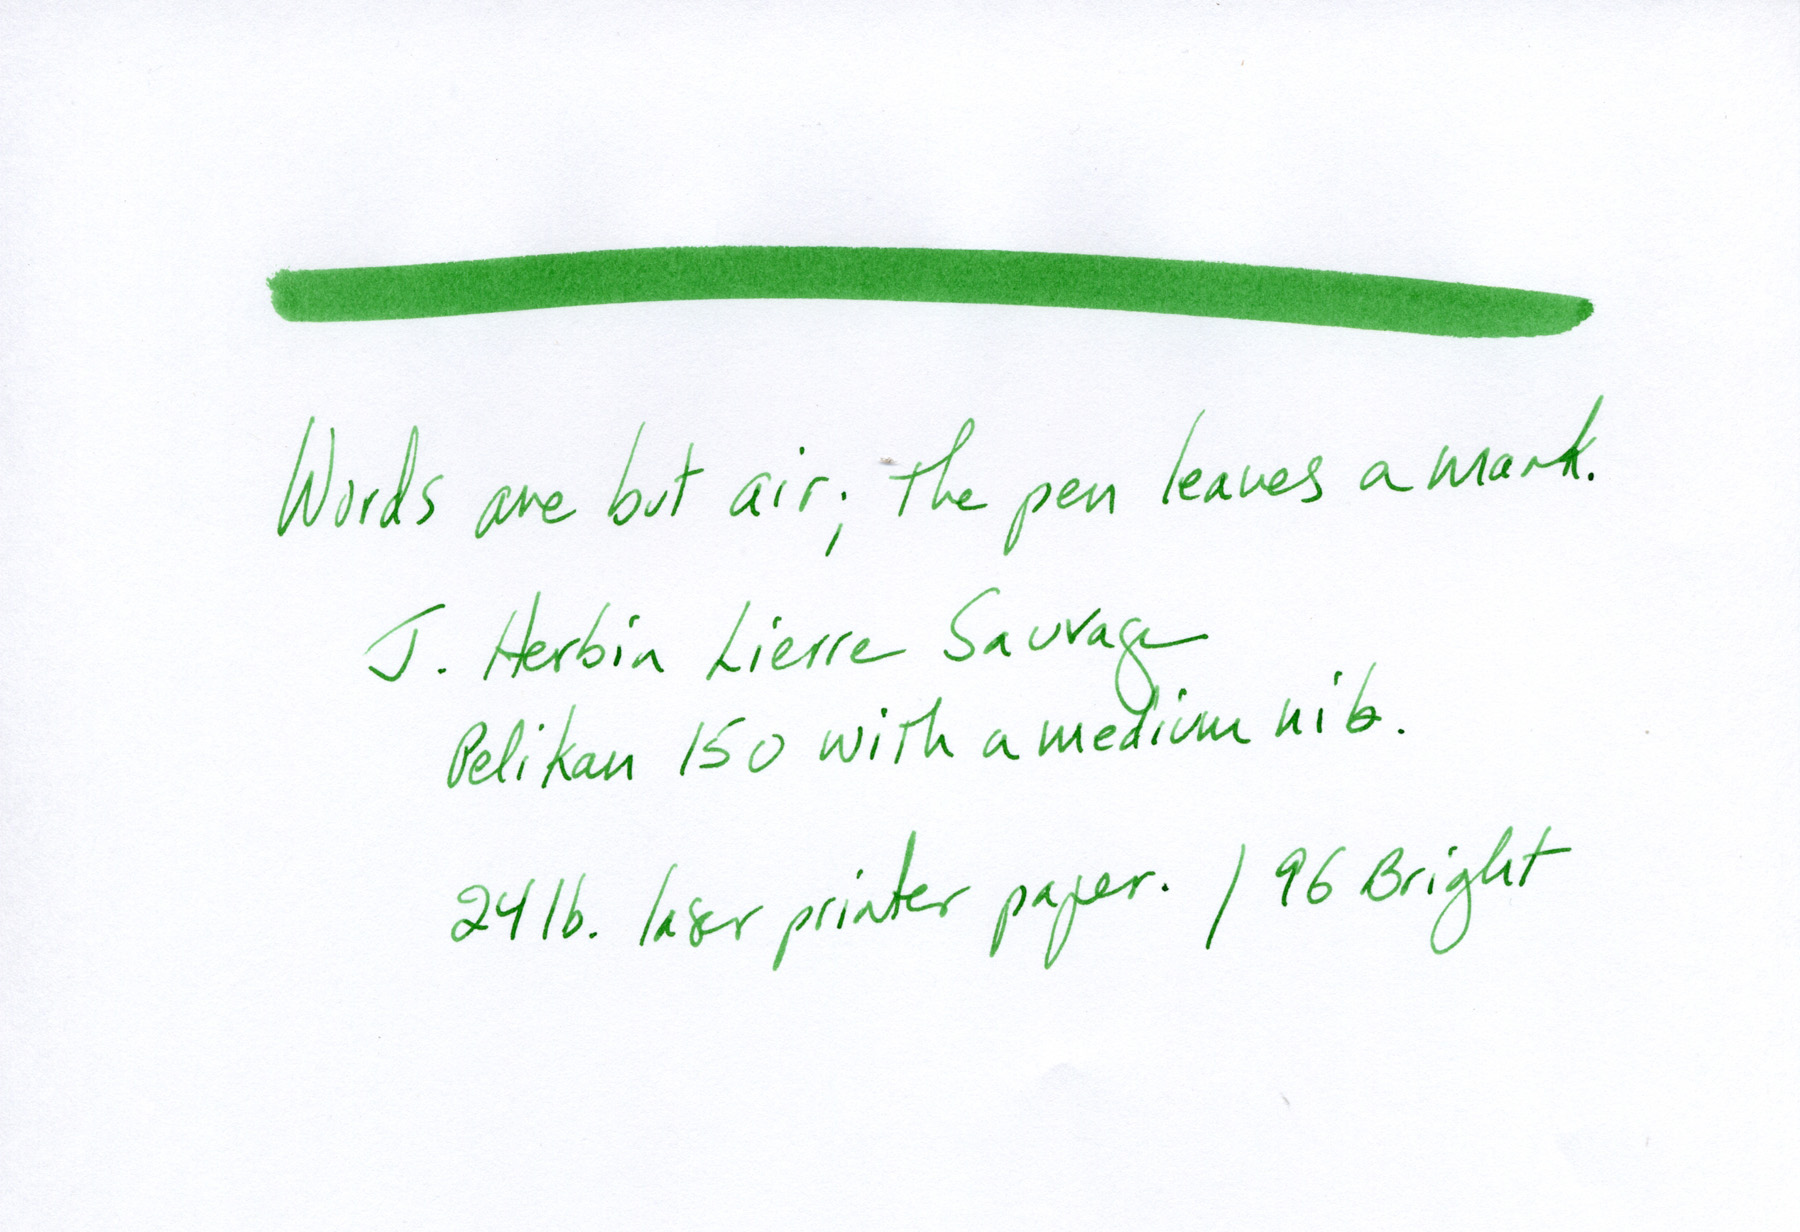 Words are but air; the pen leaves a mark.
J. Herbin Lierre Sauvage
Pelikan 150 with a medium nib.
24 lb. laser printer paper. / 96 Bright